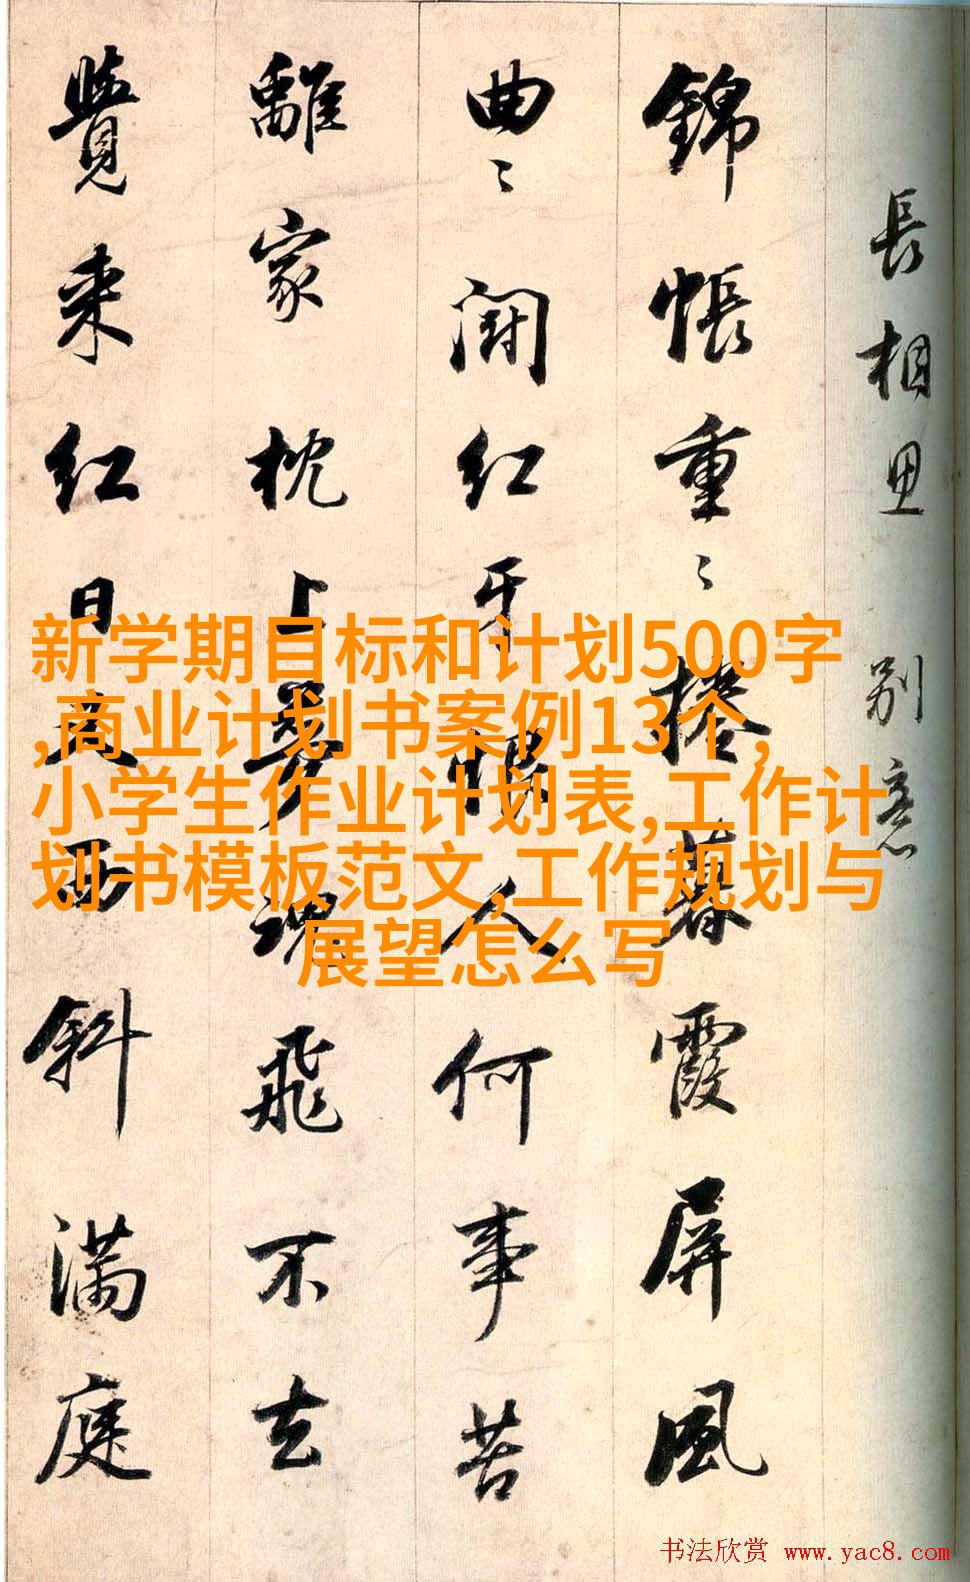 長相思 別意
錦帳重〻捲暮霞屏風
曲〻鬬红牙恨人何事苦
離家枕上夢魂飛不去
覺来红日又西斜满庭
新学期目标和计划500字
,商业计划书案例13个,
小学生作业计划表,工作计
划书模板范文,工作规划与
展望怎么写
书法欣赏 www.yac8.com